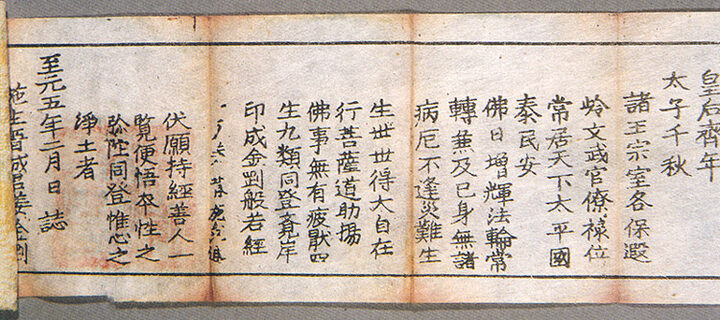 皇后齊年
太子千秋
諸王宗室各保遐
岭文武官僚禄位
常居天下太平國
泰民安
佛日增輝法輪常
轉兼及己身無諸
病厄不逢災難生
生世世得大自在
行菩薩道助揚
佛事無有疲猒四
生九類同登彼岸
印成金剛般若經
伏願持經善人一
覽便悟本性之
弥陁同登惟心之
淨土者
至元五年二月日 誌
施主晋